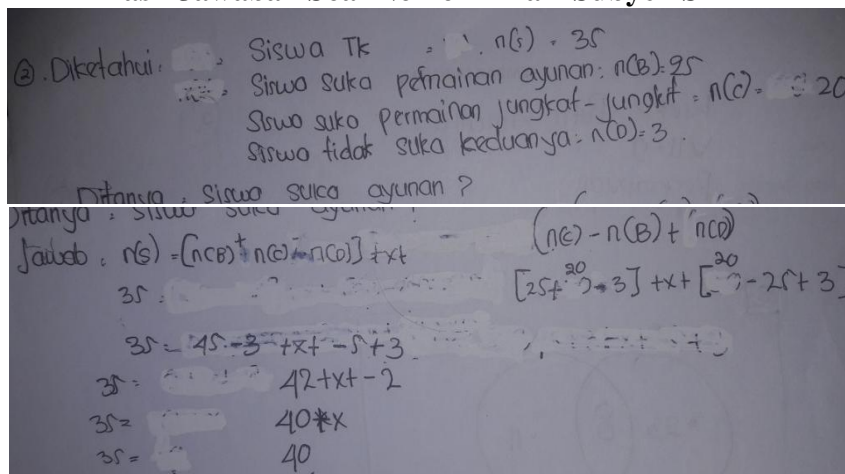 ② . Diketahui : Siswa Tk : n(s) = 35
Siswa suka permainan ayunan : n(B) = 25
Siswa suka permainan jungkat-jungkit = n(C) = 20
Siswa tidak suka keduanya : n(D) = 3.
Ditanya : Siswa suka ayunan ?
Jawab : n(S) = [n(B) + n(C) - n(D)] + x + (n(C) - n(B) + n(D)
35 = [25 + 20 - 3] + x + [20 - 25 + 3]
35 = 45 - 3 + x + - 5 + 3
35 = 42 + x + - 2
35 = 40 + x
35 = 40